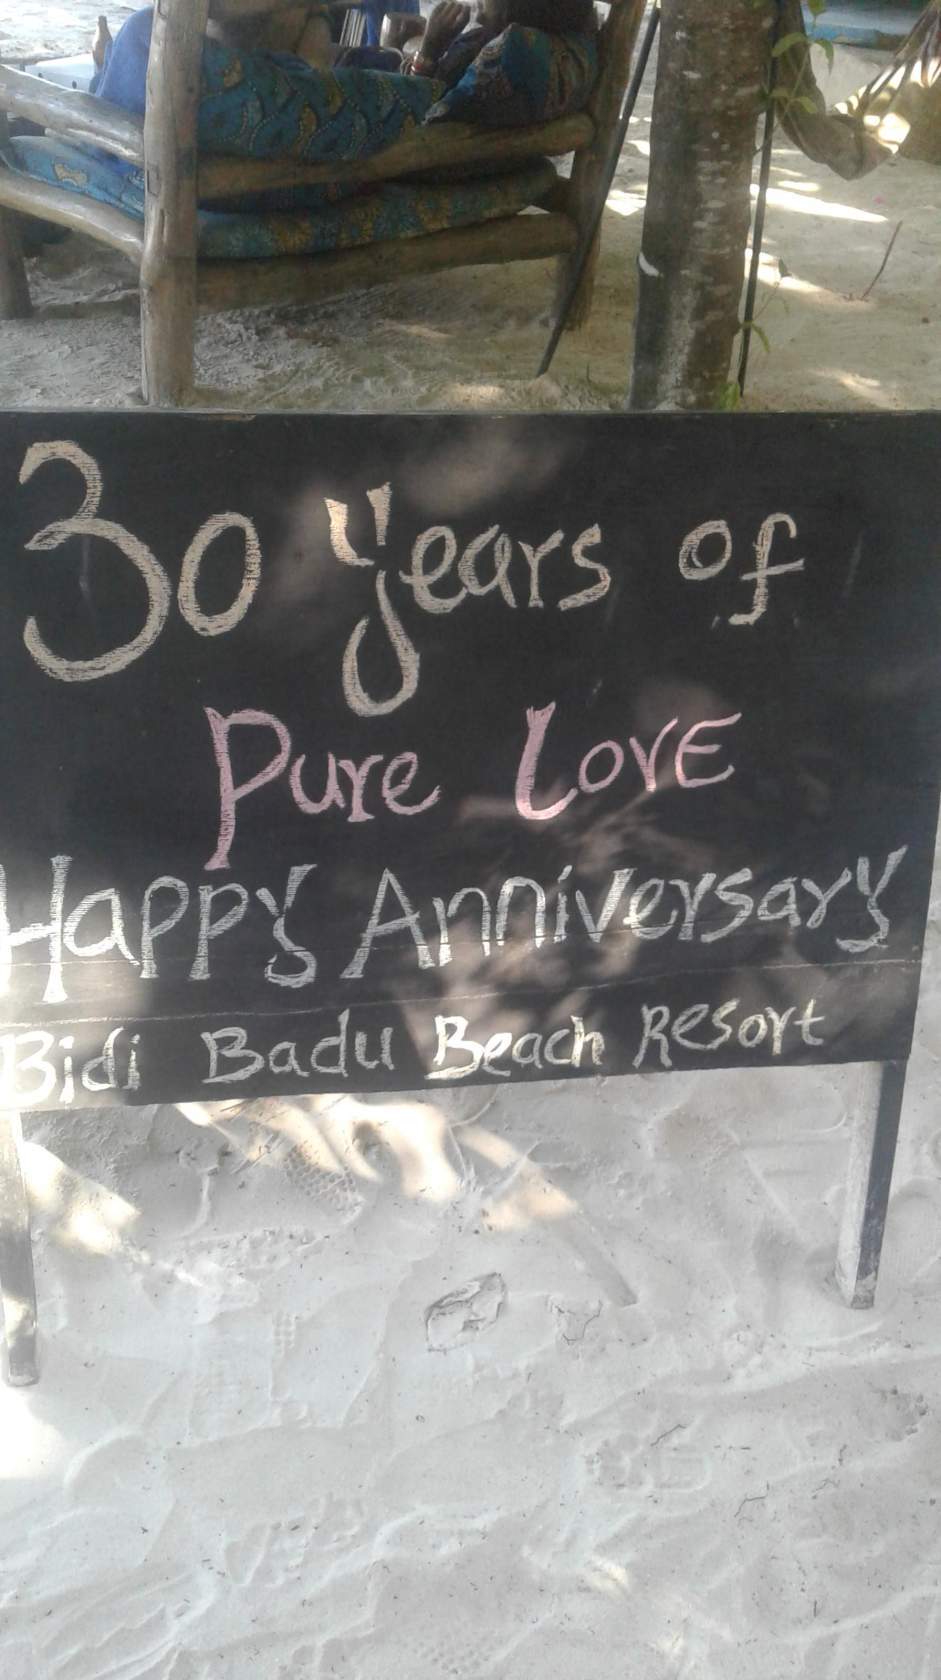 30 years of
Pure LovE
Happy Anniversary
Bidi Badu Beach Resort